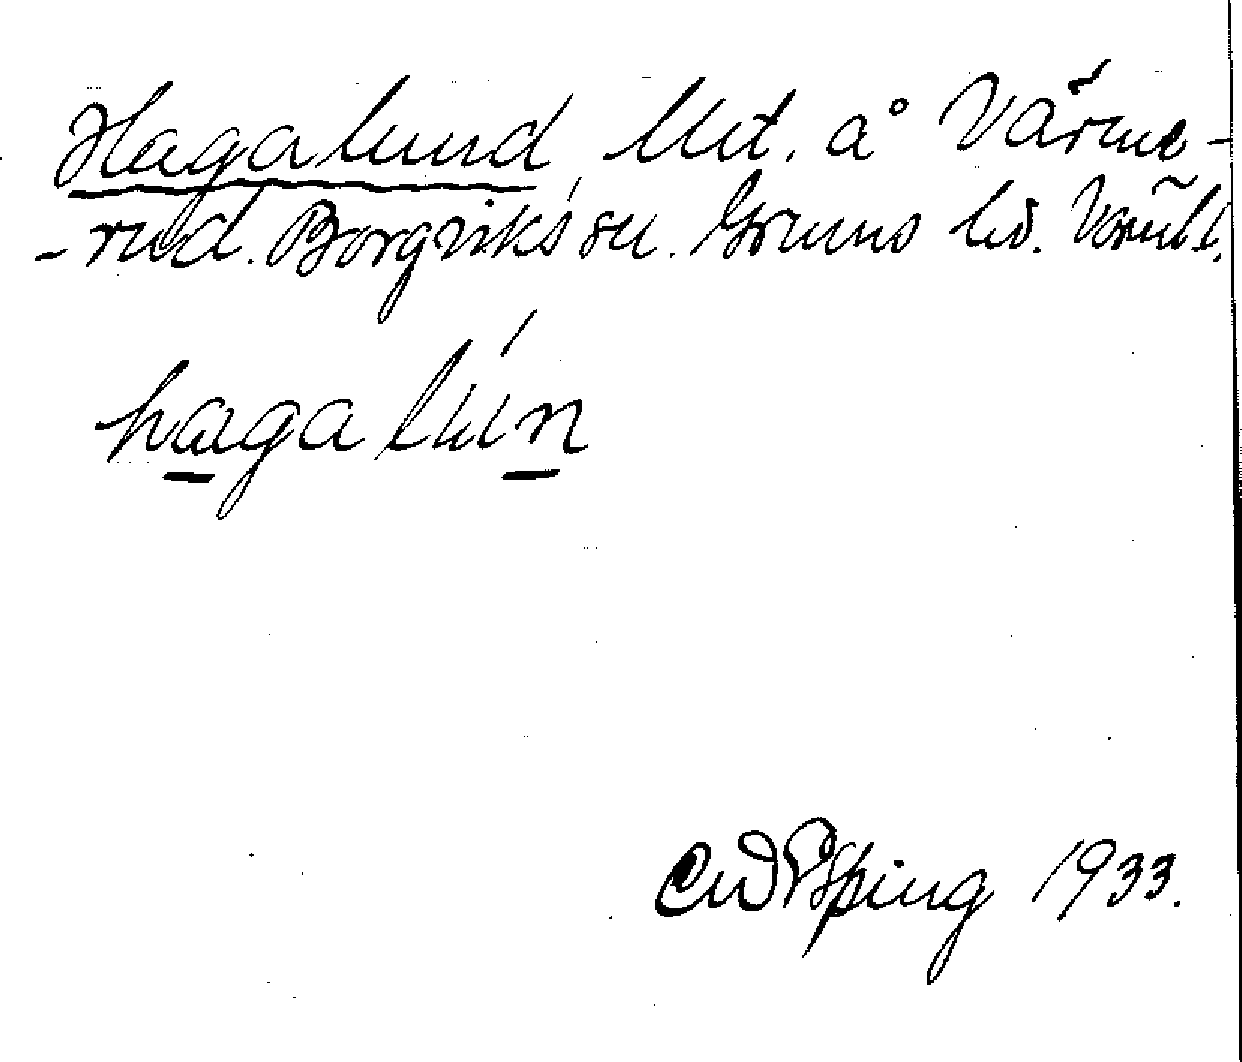 Hagalund, Utt. å Värme-
-rud. Borgviks sn. Grums hd. Vrml.
hagalún
Espling 1933.